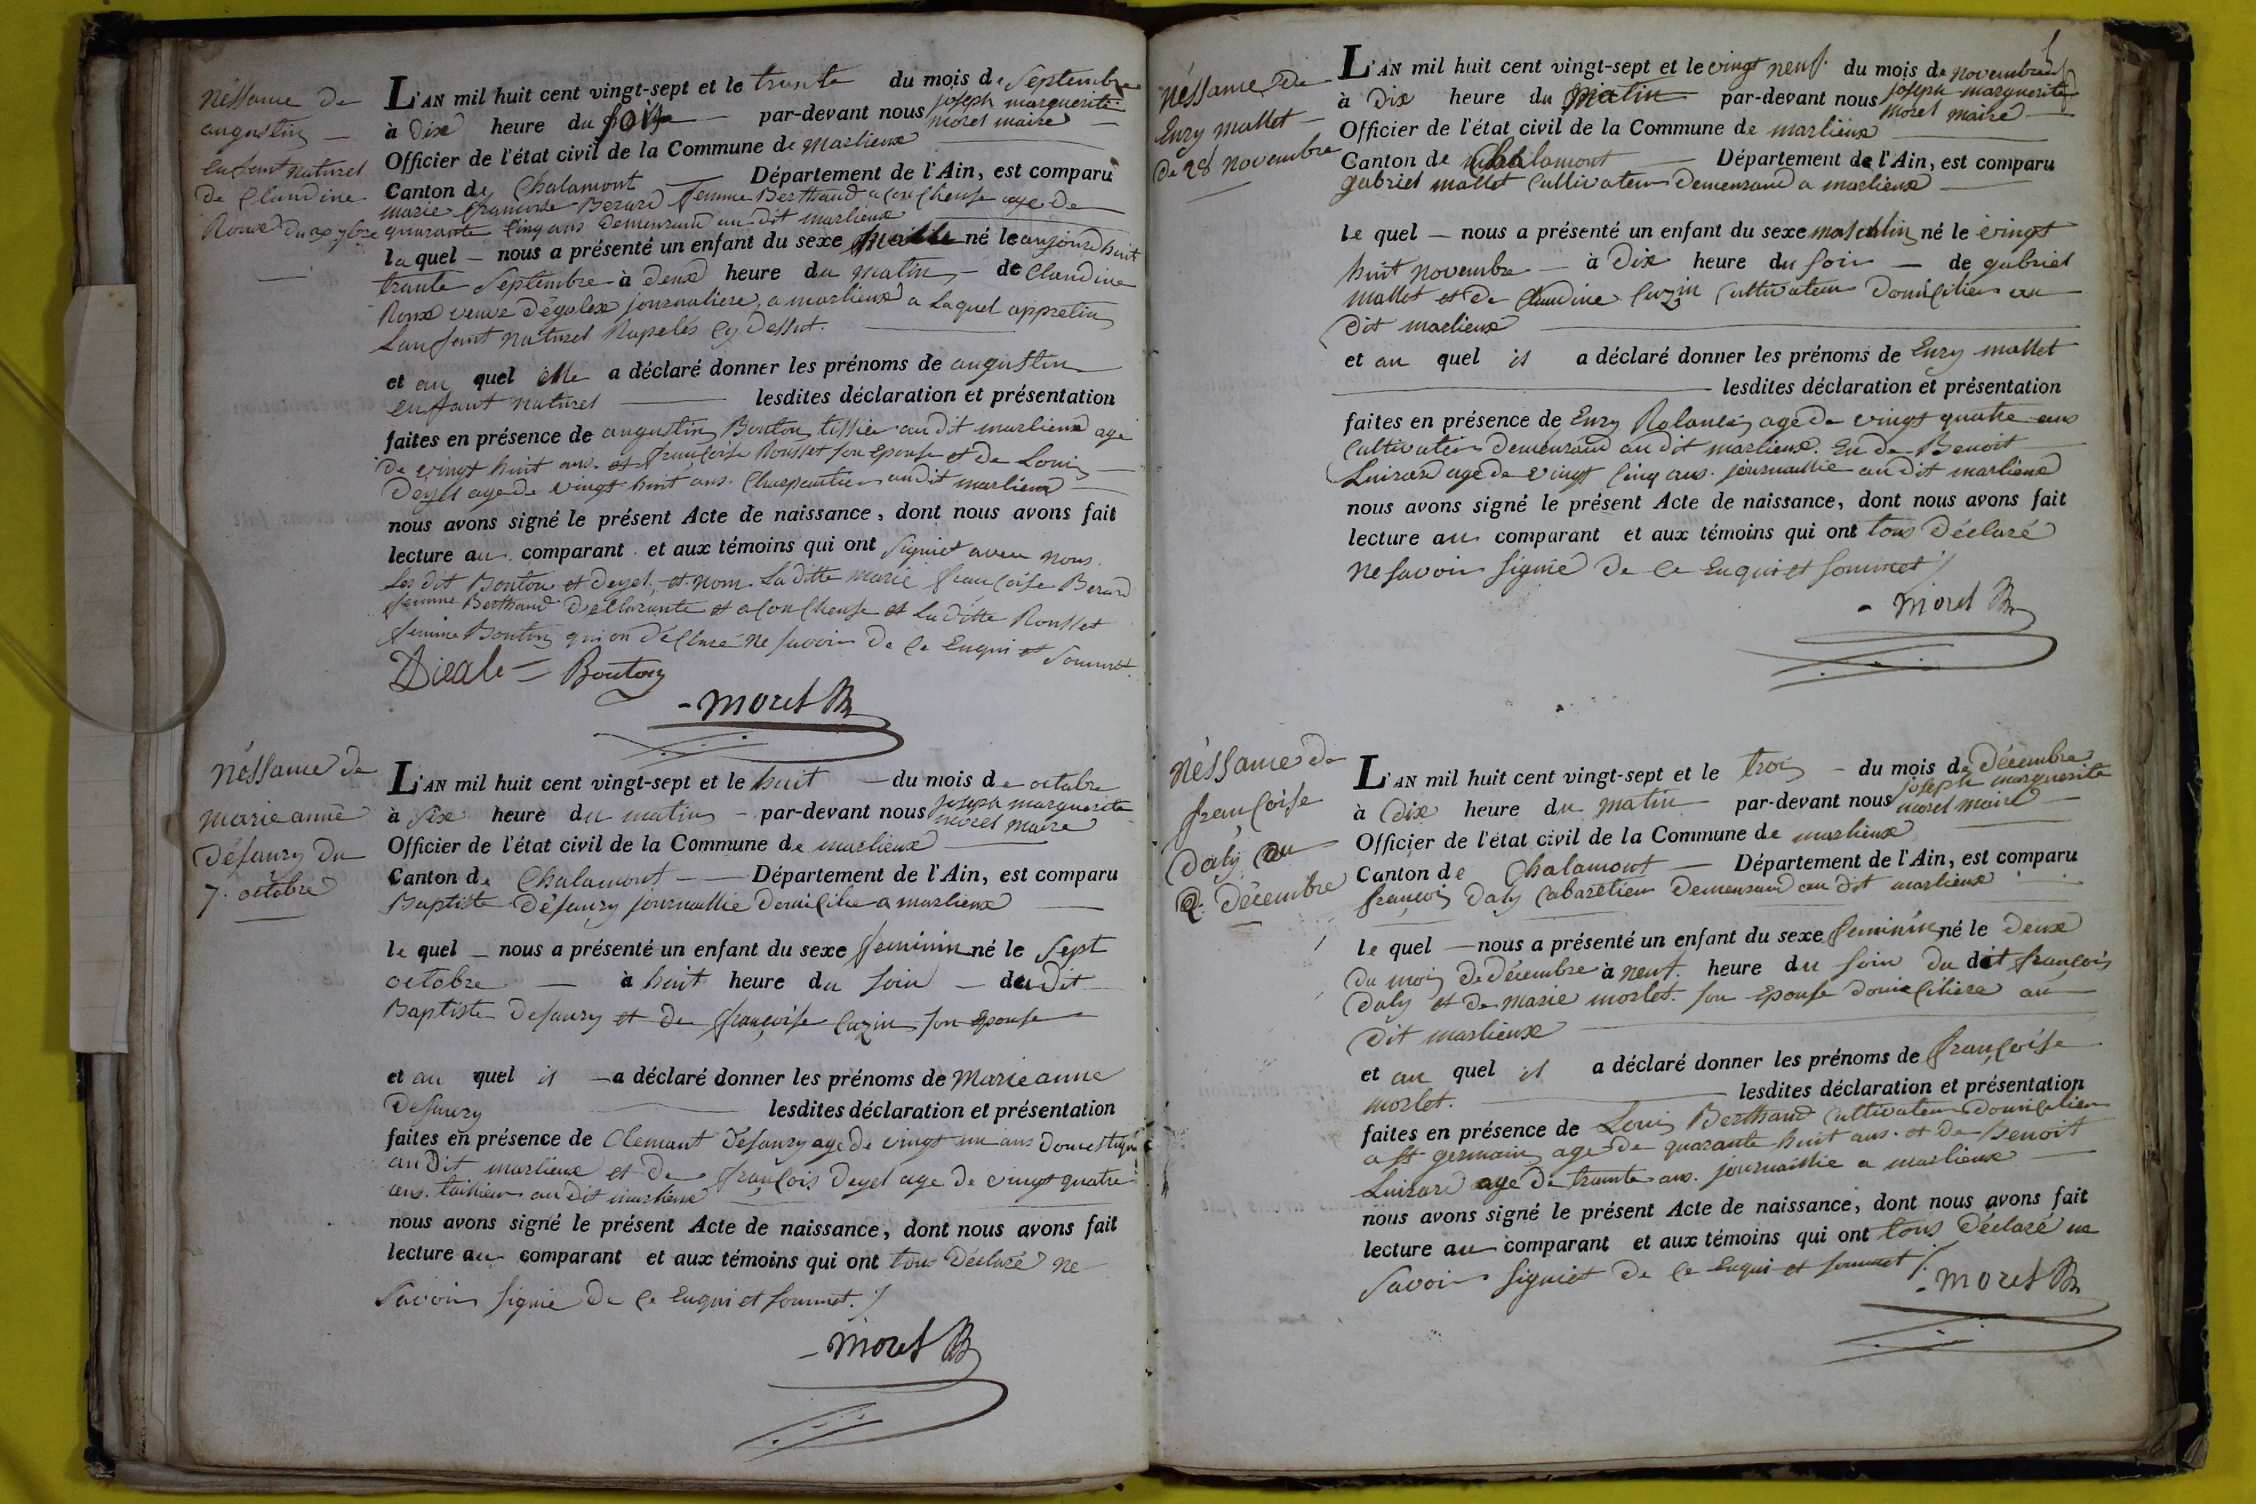 Néssance de
augustin
enfant naturel
de Claudine
Roux du 30 7bre
L'AN mil huit cent vingt-sept et le trante du mois de Septembre
à dix heure du soir par-devant nous joseph marguerite
morel maire
Officier de l'état civil de la Commune de marlieux
Canton de Chalamont Département de l'Ain, est comparu
marie francoise Berard femme Berthaud acoucheuse age de
quarante cinq ans demeurand au dit marlieux
la quel nous a présenté un enfant du sexe né le aujourdhuit
trante Septembre à deux heure du matin de Claudine
Roux veuve journaliere a marlieux a laquel
Lanfant naturel Rapelés cy dessut.
et au quel elle a déclaré donner les prénoms de augustin
enffant naturel lesdites déclaration et présentation
faites en présence de augustin Bouton tissier au dit marlieux age
de vingt huit ans. et françoise Rousset son epouse et de Louis
Deyel age de vingt huit ans. Charpantier au dit marlieux
nous avons signé le présent Acte de naissance, dont nous avons fait
lecture au comparant et aux témoins qui ont signiet avec nous.
Les dit Bouton et deyel, et nom La ditte marie françoise Berard
femme Berthaud declarante et acoucheuse et la ditte Rousset
femine Bouton qui on déclaré ne savoir de ce enqui et sommet.
Bouton
morel
Néssance de
marieanne
défaury du
7. octobre
L'AN mil huit cent vingt-sept et le huit du mois de octobre
à six heure du matin par-devant nous joseph marguerite
morel maire
Officier de l'état civil de la Commune de marlieux
Canton de Chalamont Département de l'Ain, est comparu
Baptiste défaury journallie domicilie a marlieux
le quel nous a présenté un enfant du sexe feminin né le Sept
octobre à huit heure du soir du dit
Baptiste defaury et de françoise Cuzin son epouse
et au quel il a déclaré donner les prénoms de Marieanne
defaury lesdites déclaration et présentation
faites en présence de Clemant defaury age de vingt un ans domestique
au dit marlieux et de françois deyel age de vingt quatre
ans. taillieur au dit marlieux
nous avons signé le présent Acte de naissance, dont nous avons fait
lecture au comparant et aux témoins qui ont tous déclaré ne
savoir signie de ce enqui et sommet.
morel
Néssance de
Enry mallet
du 28 novembre
L'AN mil huit cent vingt-sept et le vingt neuf. du mois de novembre
à dix heure du matin par-devant nous joseph marguerite
morel maire
Officier de l'état civil de la Commune de marlieux
Canton de Chalamont Département de l'Ain, est comparu
gabriel mallet Cultivateur demeurand a marlieux
le quel nous a présenté un enfant du sexe masculin né le vingt
huit novembre à dix heure du soir de gabriel
mallet et de Claudine Cuzin Cultivateur domicilier au
dit marlieux
et au quel il a déclaré donner les prénoms de Enry mallet
lesdites déclaration et présentation
faites en présence de Enry age de vingt quatre ans
Cultivateur demeurand au dit marlieux. Eu de Benoit
Luizard age de vingt cinq ans. journallie au dit marlieux
nous avons signé le présent Acte de naissance, dont nous avons fait
lecture au comparant et aux témoins qui ont tous déclaré
ne savoir signié de ce enqui et sommet
morel
Néssance de
françoise
daly du
2. décembre
L'AN mil huit cent vingt-sept et le troi du mois de décembre
à dix heure du matin par-devant nous joseph marguerite
morel maire
Officier de l'état civil de la Commune de marlieux
Canton de Chalamont Département de l'Ain, est comparu
françois daly Cabaretier demeurand au dit marlieux
le quel nous a présenté un enfant du sexe feminin né le deux
du moi de décembre à neuf. heure du soir du dit françois
daly et de marie morlet. son epouse domiciliere au
dit marlieux
et au quel il a déclaré donner les prénoms de françoise
morlet. lesdites déclaration et présentation
faites en présence de Louis Berthaud Cultivateur domicilier
a St germain age de quarante huit ans. et de Benoit
Luizard age de trante ans. journaillie a marlieux
nous avons signé le présent Acte de naissance, dont nous avons fait
lecture au comparant et aux témoins qui ont tous déclaré ne
savoir signiet de ce enqui et sommet
morel